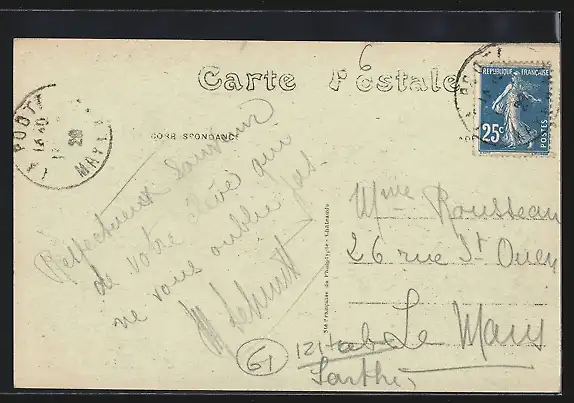 6
Carte Postale
CORRESPONDANCE
LA POOTÉ
13 40
20
MAYENNE
REPUBLIQUE FRANÇAISE
25c
POSTES
Respectueux Souvenir
de votre élève qui
ne vous oublie pas.
Mme Rousseau
26 rue St Ouen
Le Mans
Sarthe
61
Sté Française de Phototypie - Châteaude